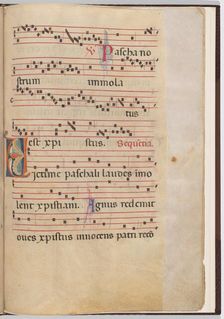 Pascha no
strum immola
tus
est xpi stus. Sequentia.
Victime paschali laudes imo
lent xpistiani. Agnus redemit
oves xpistus innocens patri reco